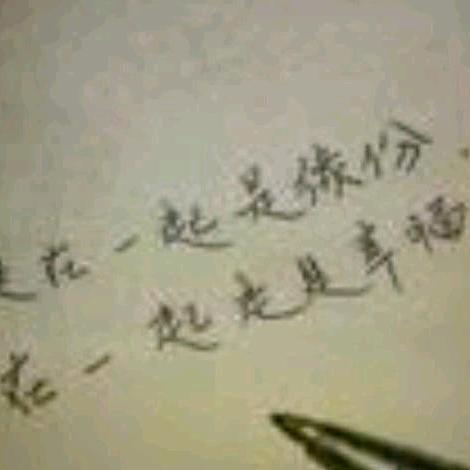 走在一起是缘份，
在一起走是幸福